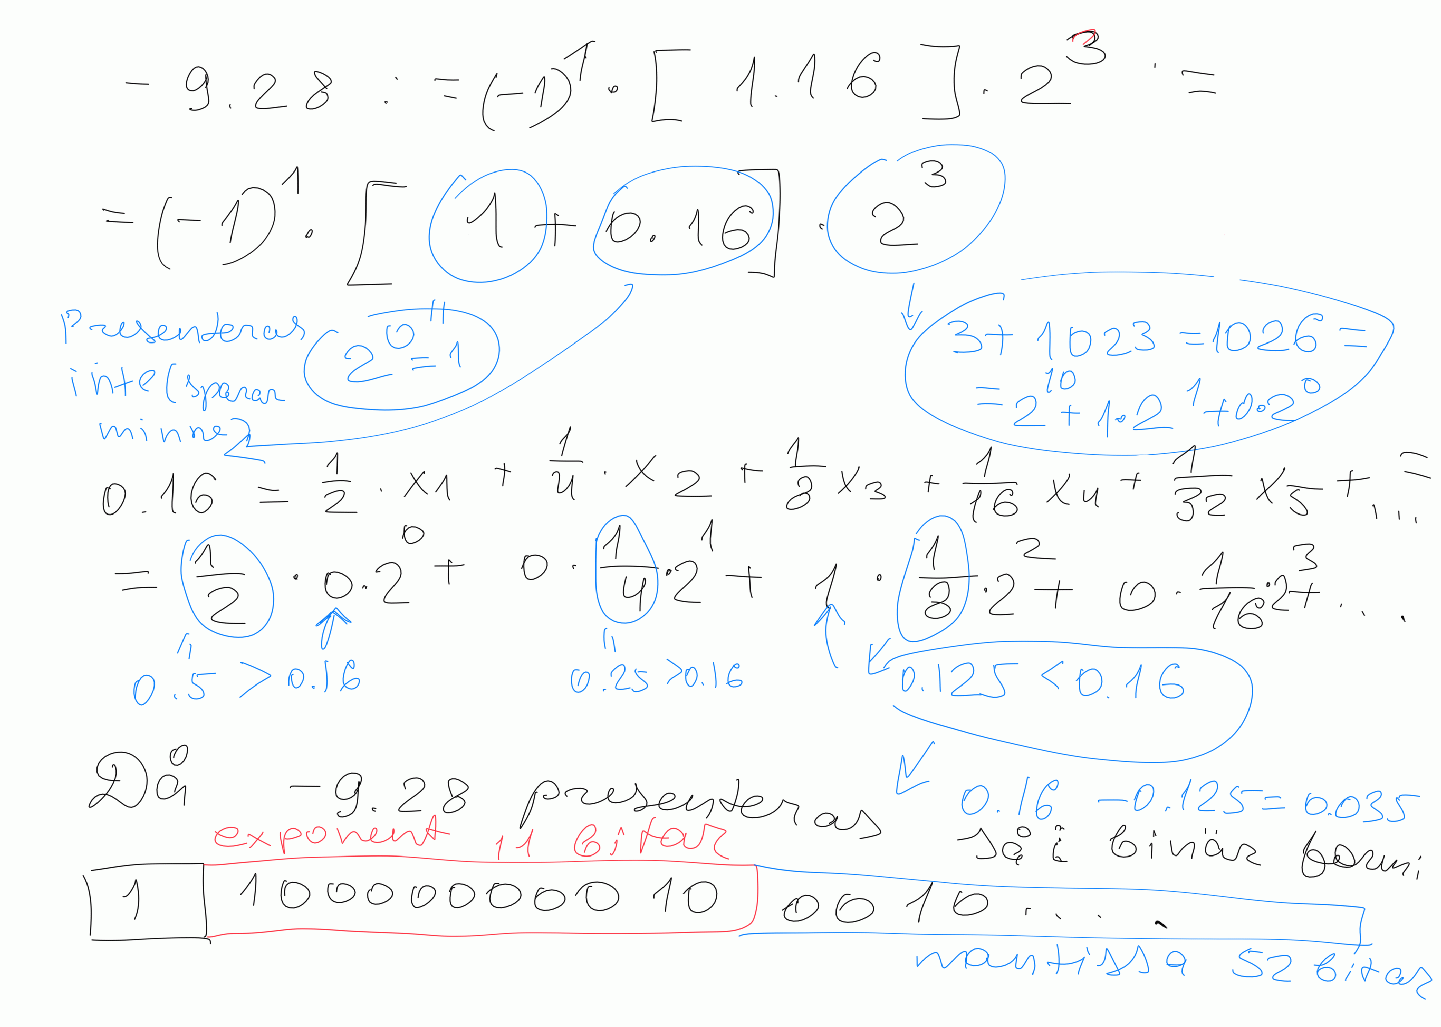 - 9.28 := (-1)^1 · [ 1.16 ] · 2^3 =
= (-1)^1 · [ 1 + 0.16 ] · 2^3
Presenteras
inte (sparar
minne)
2^0 = 1
3 + 1023 = 1026 =
= 2^10 + 1·2^1 + 0·2^0
0.16 = 1/2 · x1 + 1/4 · x2 + 1/8 x3 + 1/16 x4 + 1/32 x5 + ... =
= 1/2 · 0·2^0 + 0 · 1/4 · 2^1 + 1 · 1/8 · 2^2 + 0 · 1/16 · 2^3 + ...
0.5 > 0.16
0.25 > 0.16
0.125 < 0.16
0.16 - 0.125 = 0.035
Då -9.28 presenteras så i binär form:
exponent 11 bitar
1 10000000010 0010 ....
mantissa 52 bitar